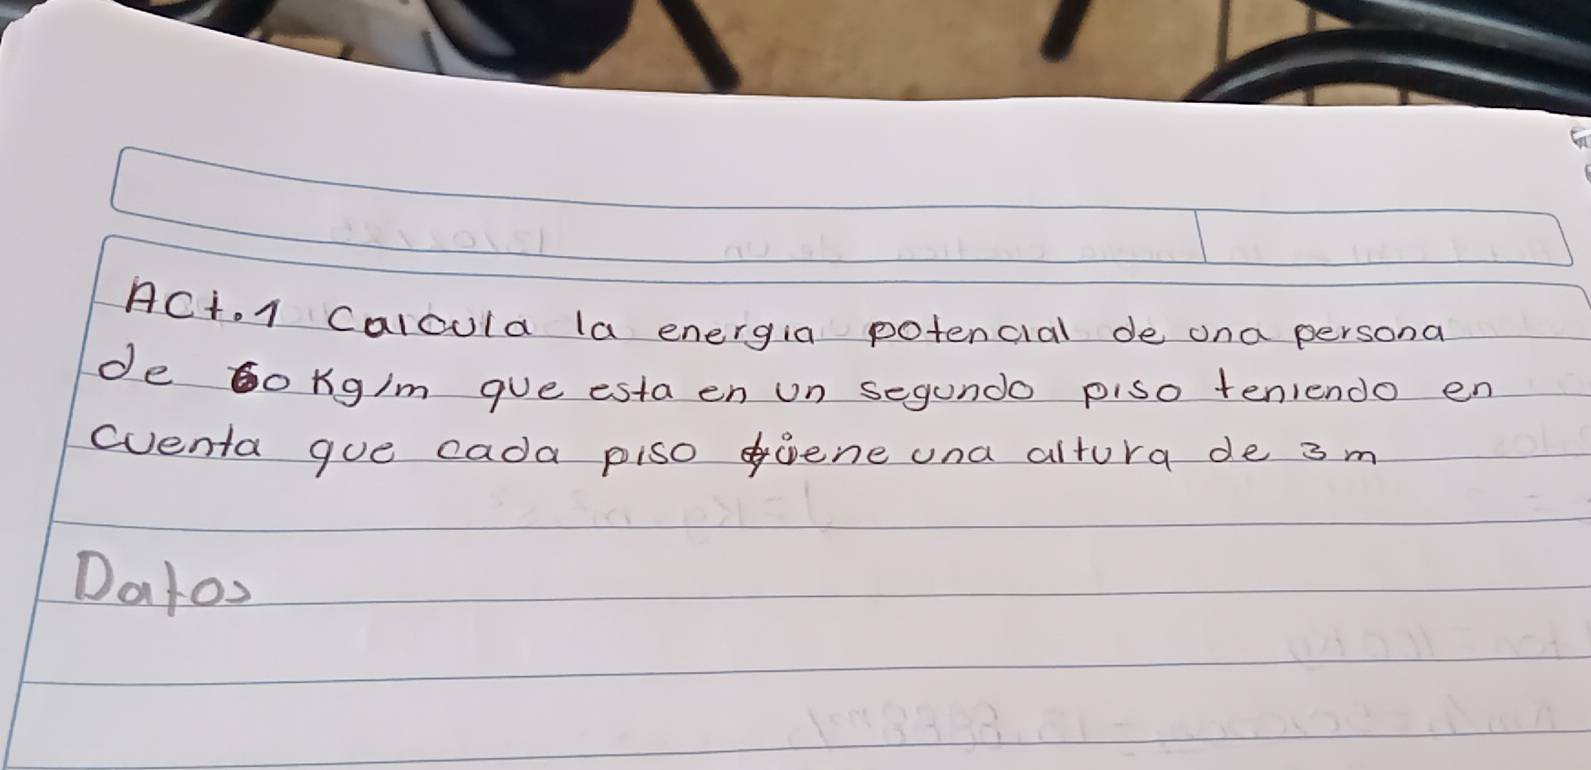 Act.1 Calcula la energia potencial de una persona
de 60 Kg/m que esta en un segundo piso teniendo en
cuenta que cada piso tiene una altura de 3 m
Datos